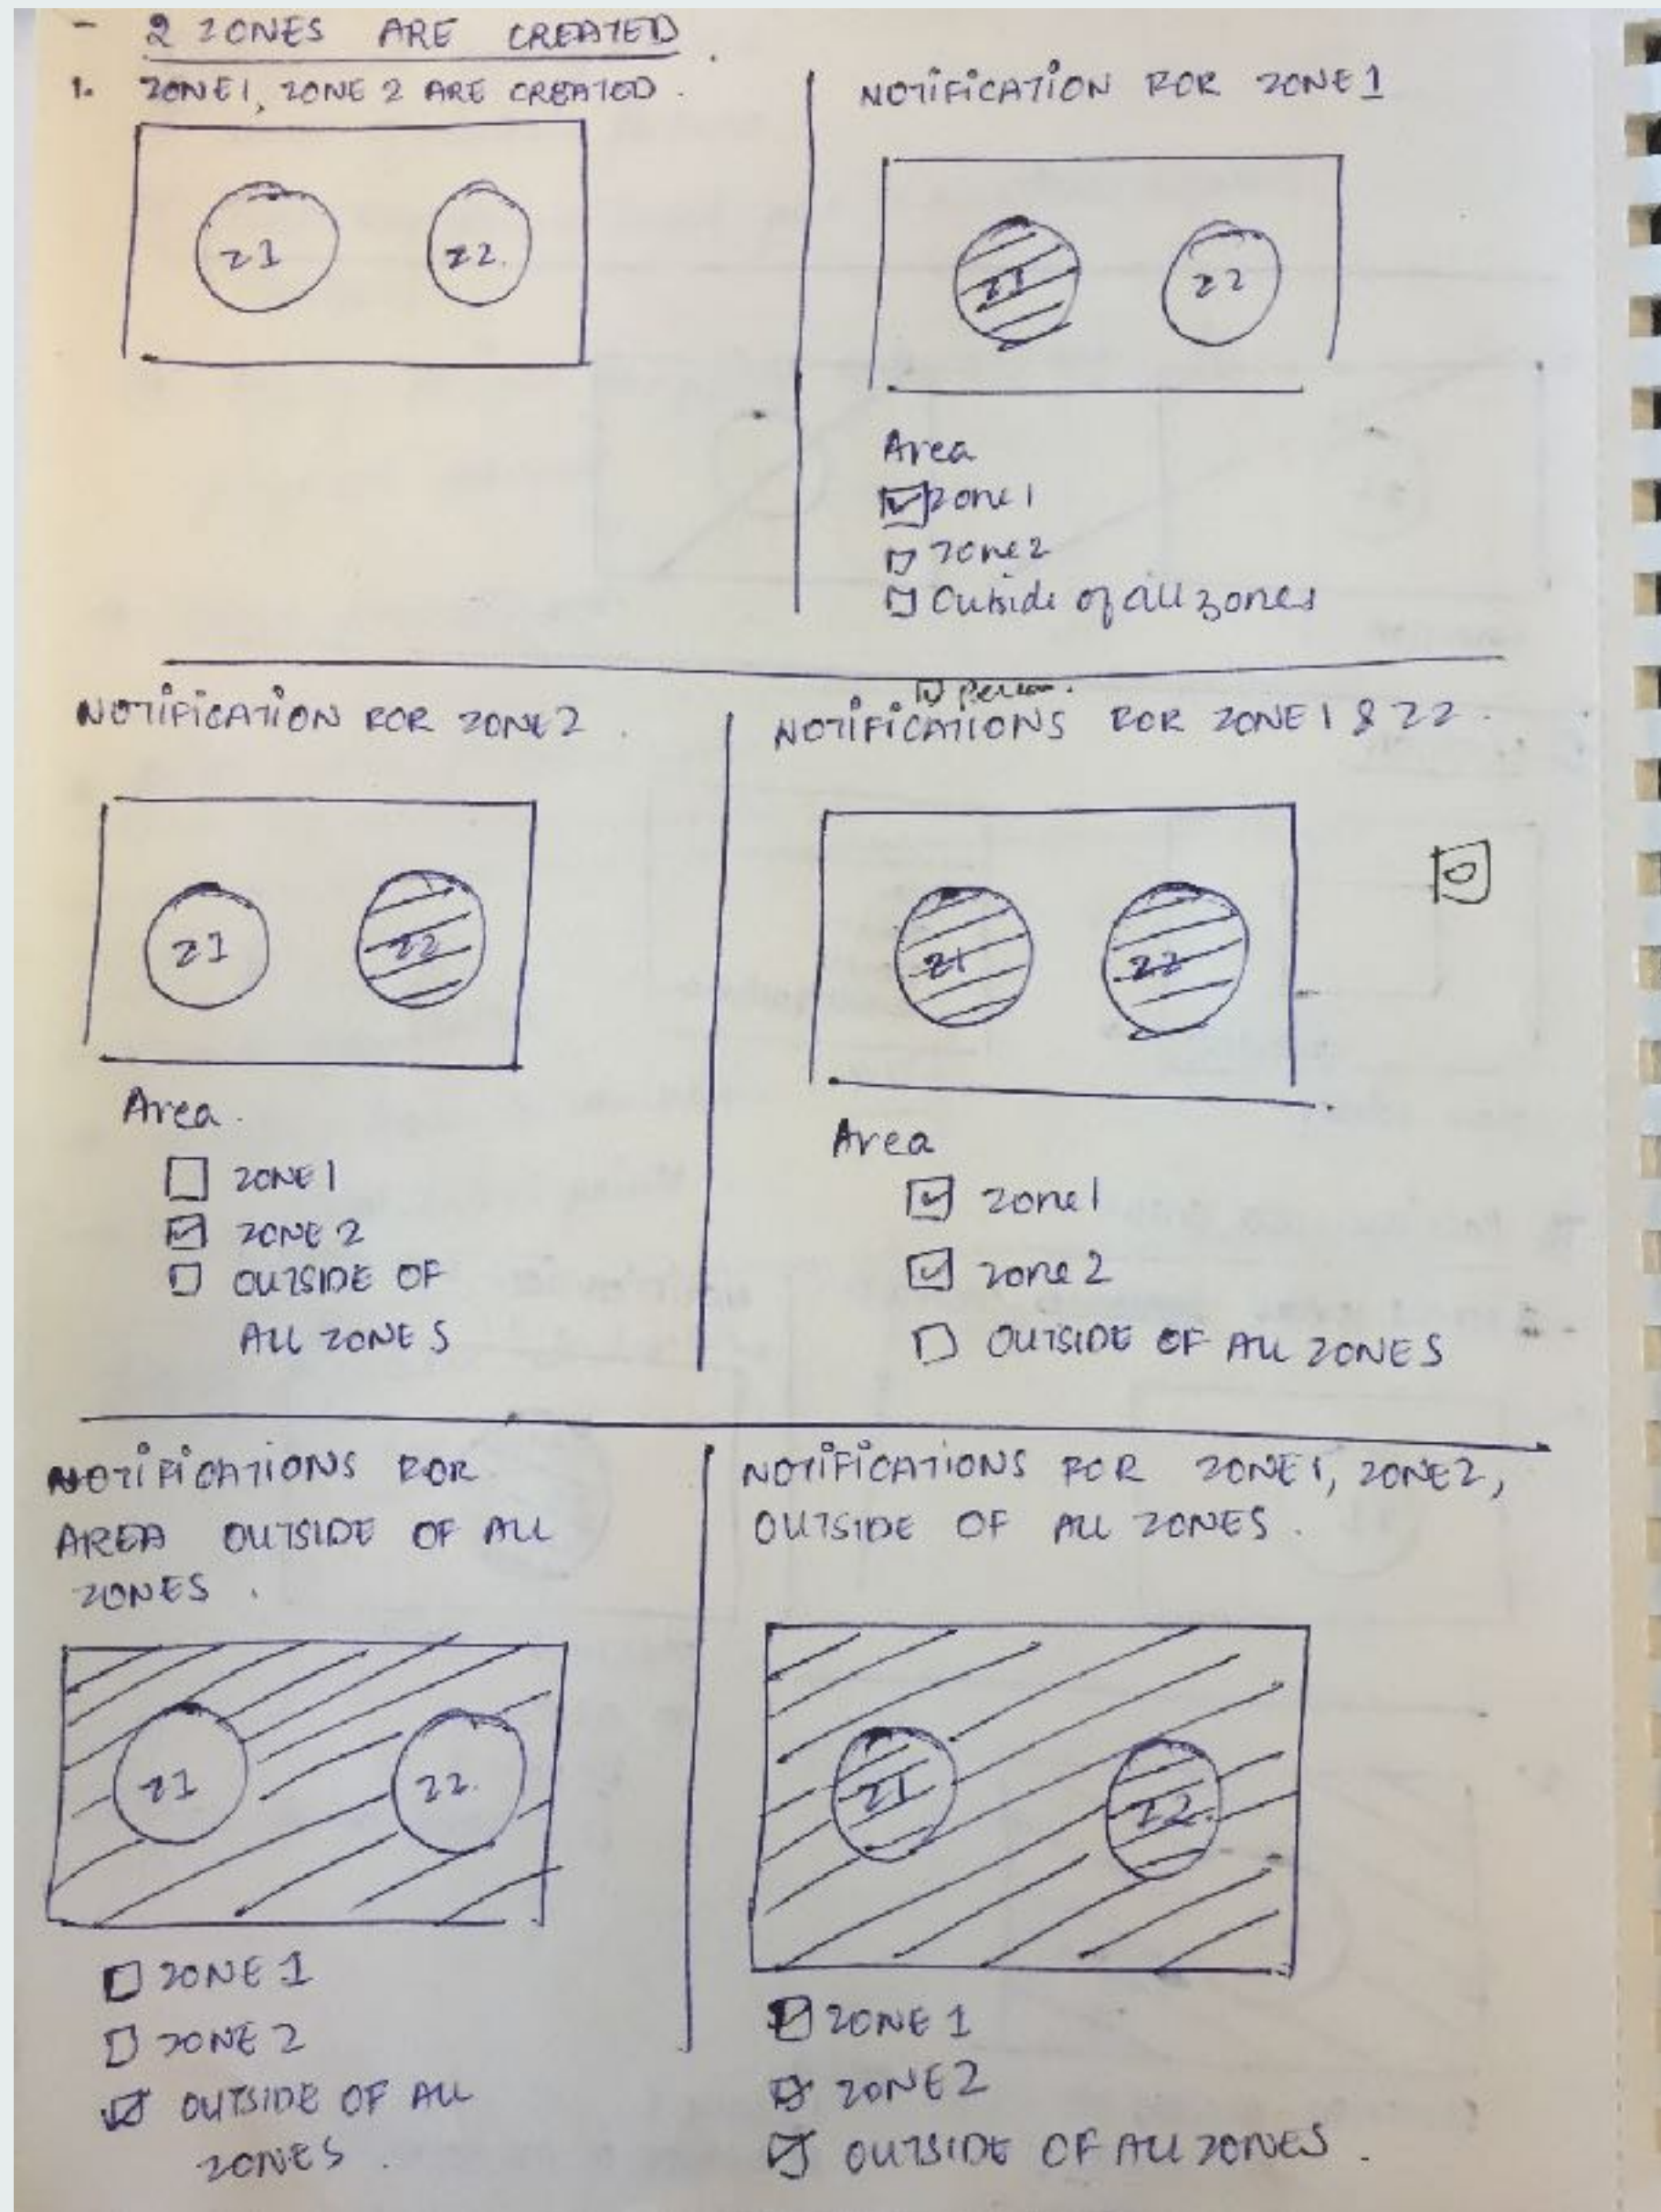 - 2 ZONES ARE CREATED.
1. ZONE1, ZONE 2 ARE CREATED.
Z1
Z2.
NOTIFICATION FOR ZONE 1
Z1
Z2
Area
Zone 1
Zone 2
Outside of all zones
NOTIFICATION FOR ZONE 2.
Z1
Z2
Area.
ZONE 1
ZONE 2
OUTSIDE OF
ALL ZONES
NOTIFICATIONS FOR ZONE 1 & Z2.
Z1
Z2
Area
Zone 1
Zone 2
OUTSIDE OF ALL ZONES
NOTIFICATIONS FOR
AREA OUTSIDE OF ALL
ZONES.
Z1
Z2.
ZONE 1
ZONE 2
OUTSIDE OF ALL
ZONES.
NOTIFICATIONS FOR ZONE 1, ZONE 2,
OUTSIDE OF ALL ZONES.
Z1
Z2.
ZONE 1
ZONE 2
OUTSIDE OF ALL ZONES.